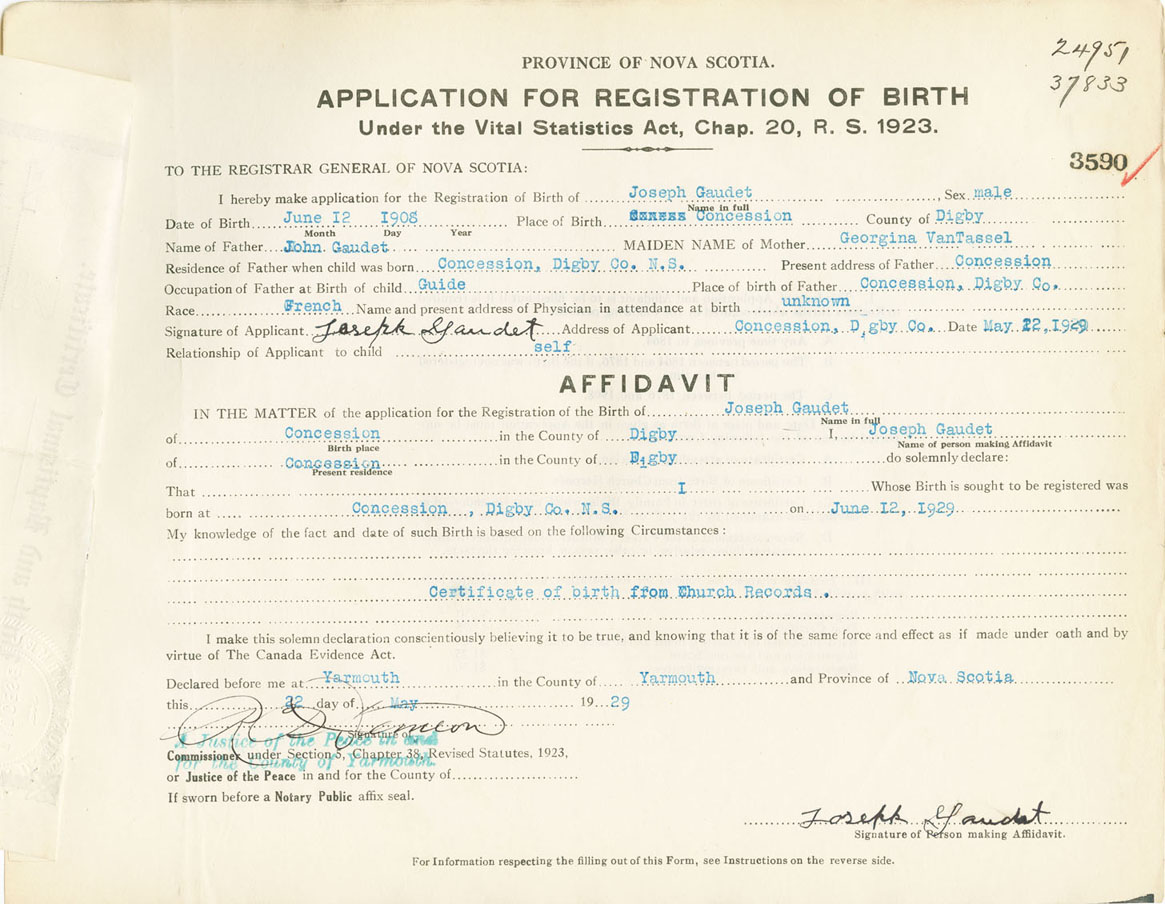 24951
37833
PROVINCE OF NOVA SCOTIA.
APPLICATION FOR REGISTRATION OF BIRTH
Under the Vital Statistics Act, Chap. 20, R. S. 1923.
3590
TO THE REGISTRAR GENERAL OF NOVA SCOTIA:
I hereby make application for the Registration of Birth of Joseph Gaudet, Sex male
Name in full
Date of Birth June 12 1908 Place of Birth Concession County of Digby
Month Day Year
Name of Father John Gaudet MAIDEN NAME of Mother Georgina VanTassel
Residence of Father when child was born Concession, Digby Co. N.S. Present address of Father Concession
Occupation of Father at Birth of child Guide Place of birth of Father Concession, Digby Co.
Race French Name and present address of Physician in attendance at birth unknown
Signature of Applicant Joseph Gaudet Address of Applicant Concession, Digby Co. Date May 22, 1929
Relationship of Applicant to child self
AFFIDAVIT
IN THE MATTER of the application for the Registration of the Birth of Joseph Gaudet
Name in full
of Concession in the County of Digby I, Joseph Gaudet
Birth place Name of person making Affidavit
of Concession in the County of Digby do solemnly declare:
Present residence
That I Whose Birth is sought to be registered was
born at Concession, Digby Co. N.S. on June 12, 1929
My knowledge of the fact and date of such Birth is based on the following Circumstances:
Certificate of birth from Church Records.
I make this solemn declaration conscientiously believing it to be true, and knowing that it is of the same force and effect as if made under oath and by
virtue of The Canada Evidence Act.
Declared before me at Yarmouth in the County of Yarmouth and Province of Nova Scotia
this 22 day of May 1929
Signature of
A Justice of the Peace in and
Commissioner under Section 5, Chapter 38, Revised Statutes, 1923,
for the County of Yarmouth.
or Justice of the Peace in and for the County of
If sworn before a Notary Public affix seal.
Joseph Gaudet
Signature of Person making Affidavit.
For Information respecting the filling out of this Form, see Instructions on the reverse side.